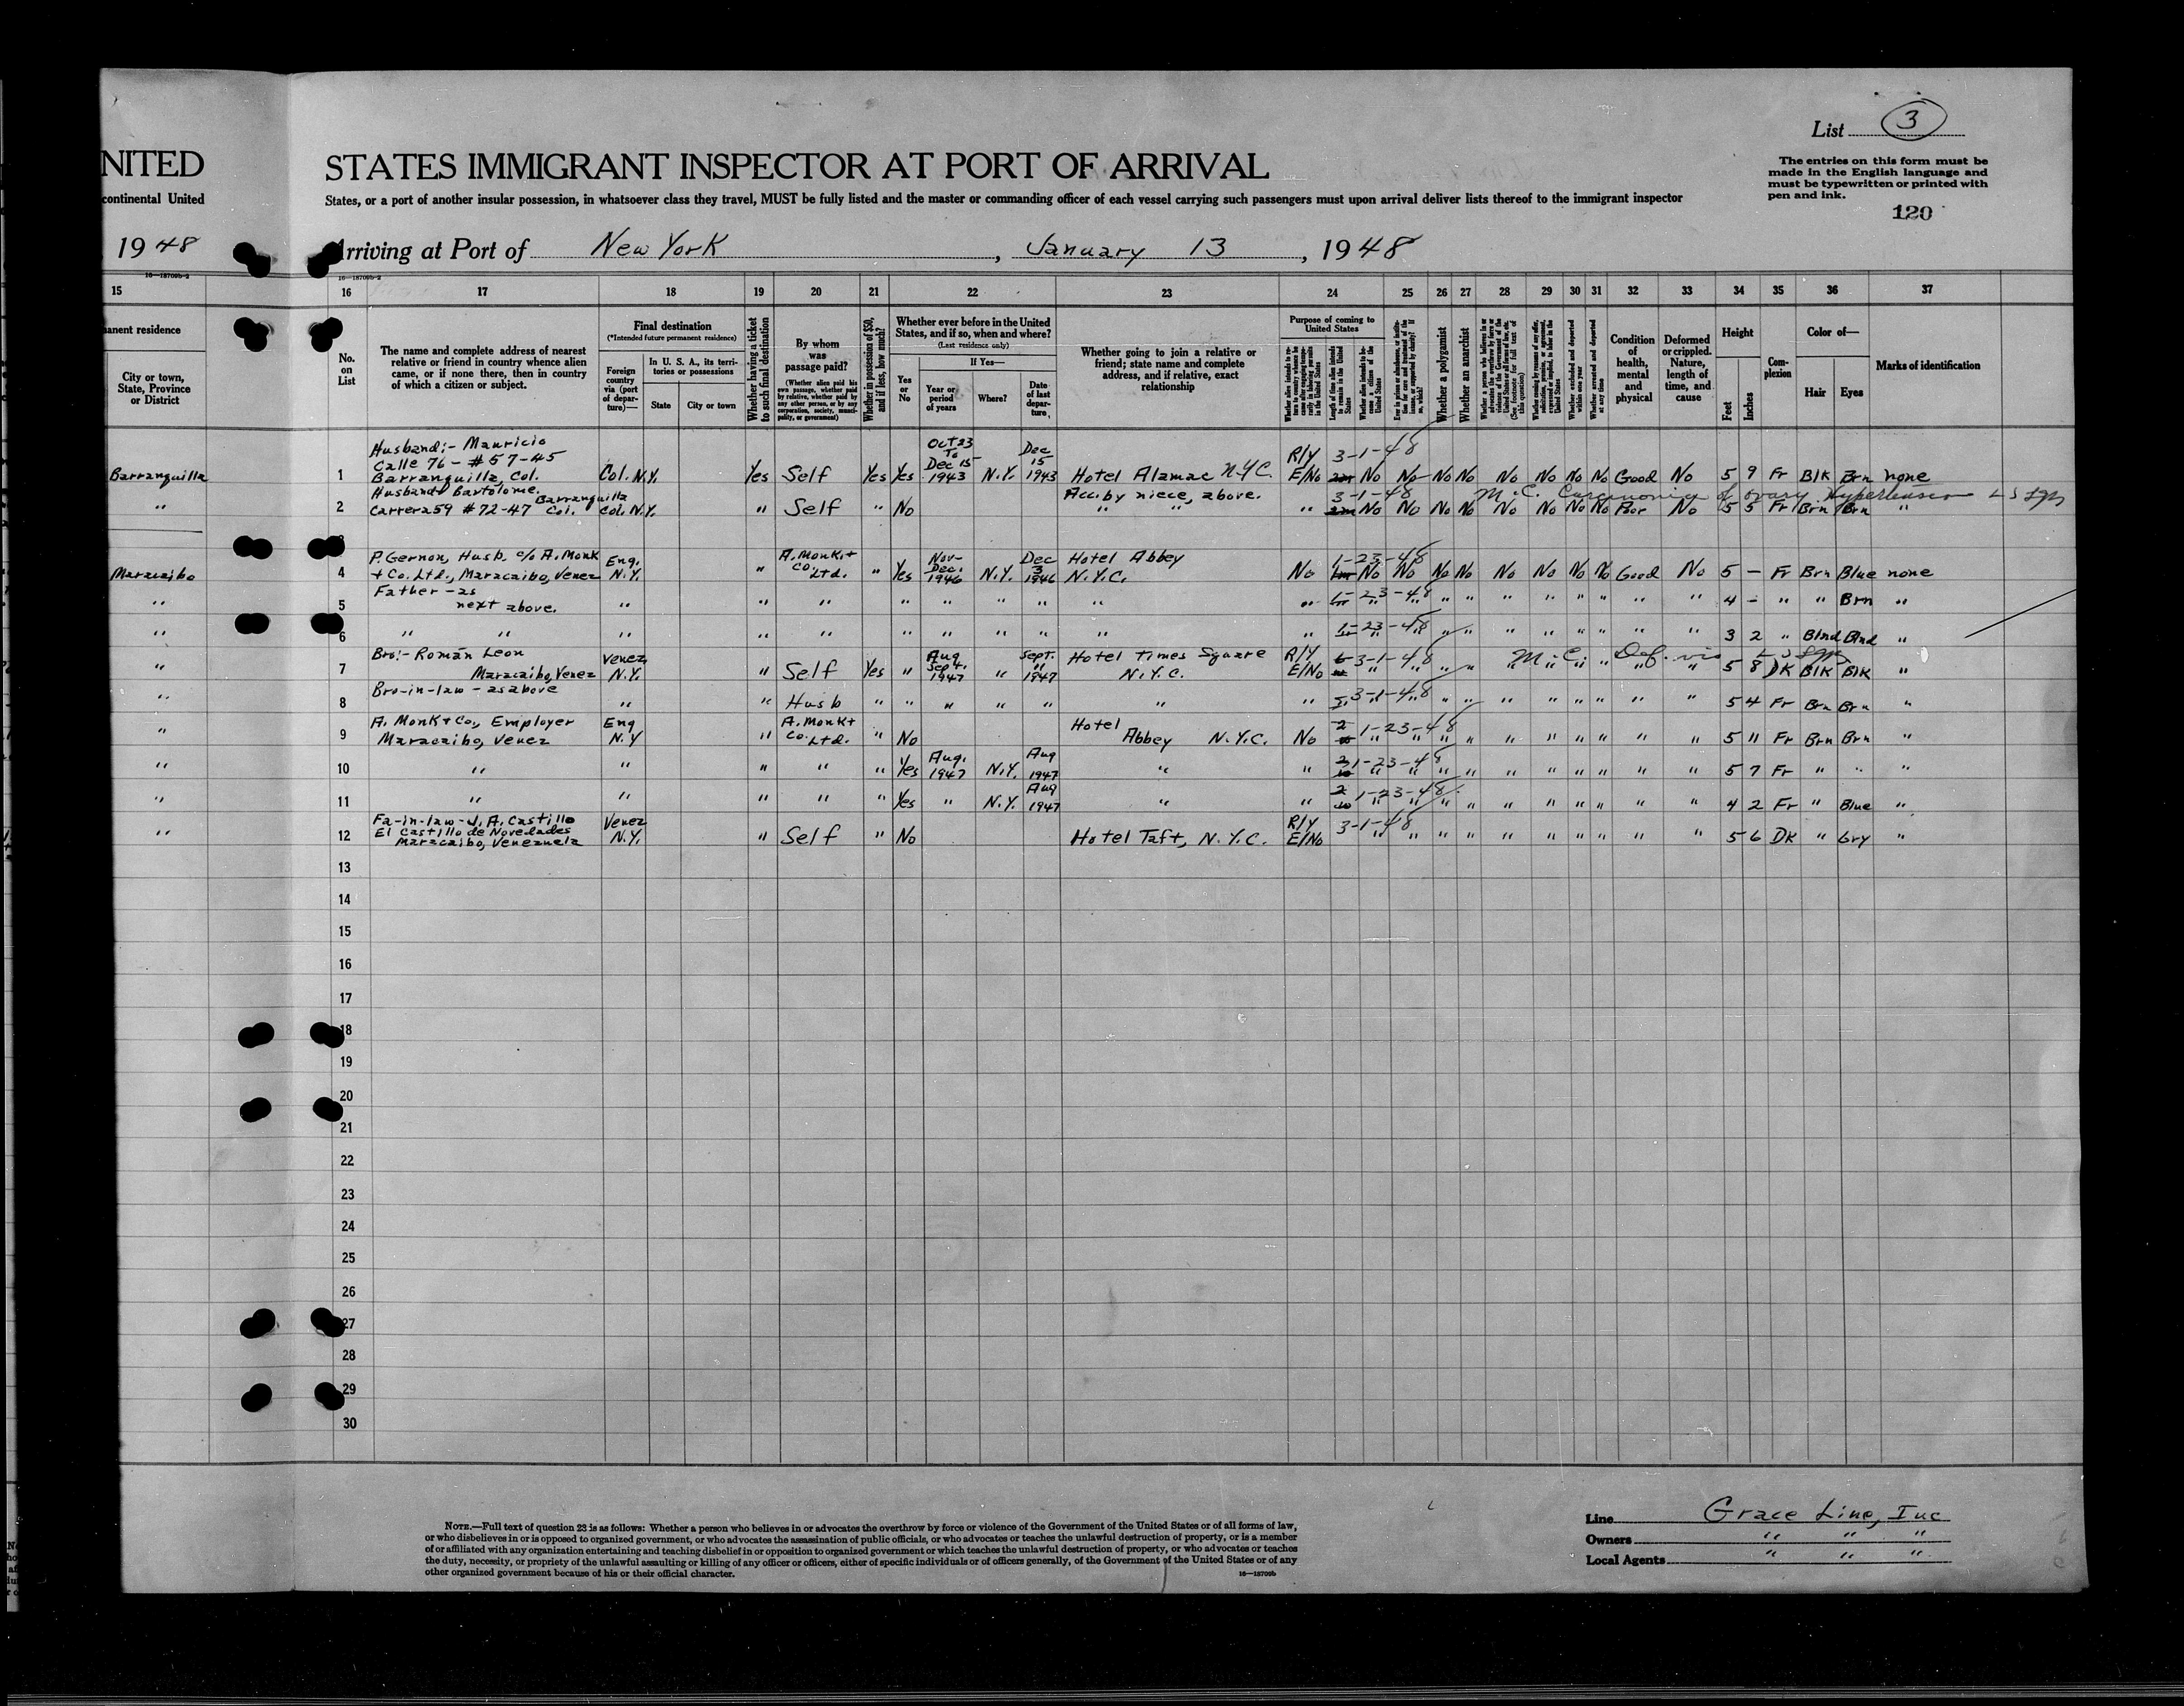 List 3
The entries on this form must be
made in the English language and
must be typewritten or printed with
pen and ink.
120
NITED
STATES IMMIGRANT INSPECTOR AT PORT OF ARRIVAL
continental United
States, or a port of another insular possession, in whatsoever class they travel, MUST be fully listed and the master or commanding officer of each vessel carrying such passengers must upon arrival deliver lists thereof to the immigrant inspector
1948
Arriving at Port of New York, January 13, 1948
16—18709b-2
16—18709b-2
15 16 17 18 19 20 21 22 23 24 25 26 27 28 29 30 31 32 33 34 35 36 37
anent residence
City or town,
State, Province
or District
No.
on
List
The name and complete address of nearest
relative or friend in country whence alien
came, or if none there, then in country
of which a citizen or subject.
Final destination
(*Intended future permanent residence)
Foreign
country
via (port
of depar-
ture)—
In U. S. A., its terri-
tories or possessions
State
City or town
Whether having a ticket
to such final destination
By whom
was
passage paid?
(Whether alien paid his
own passage, whether paid
by relative, whether paid by
any other person, or by any
corporation, society, munici-
pality, or government)
Whether in possession of $50,
and if less, how much?
Whether ever before in the United
States, and if so, when and where?
(Last residence only)
Yes
or
No
If Yes—
Year or
period
of years
Where?
Date
of last
depar-
ture
Whether going to join a relative or
friend; state name and complete
address, and if relative, exact
relationship
Purpose of coming to
United States
Length of time alien intends
to remain in the United
States
Whether alien intends to be-
come citizen of the
United States
Whether a polygamist
Whether an anarchist
Whether arrested and deported
at any time
Condition
of
health,
mental
and
physical
Deformed
or crippled.
Nature,
length of
time, and
cause
Height
Feet
Inches
Com-
plexion
Color of—
Hair
Eyes
Marks of identification
Husband:- Mauricio
Calle 76 - #57-45
Barranquilla 1 Barranquilla, Col. Col. N.Y. Yes Self Yes Yes Oct 23 To Dec 15 1943 N.Y. Dec 15 1943 Hotel Alamac N.Y.C. R/Y E/No 3-1-48 No No No No No No No No Good No 5 9 Fr Blk Brn none
Husband Bartolome.
" 2 Carrera 59 #72-47 Barranquilla Col. Col. N.Y. " Self " No Acc. by niece, above. " " " 3-1-48 No No No No No No No No Poor No 5 5 Fr Brn Brn "
M.C. Carcinoma of ovary Hypertension
3
P. Gernon, Husb. c/o A. Monk
Maracaibo 4 + Co. Ltd., Maracaibo, Venez Eng. N.Y. " A. Monk + Co. Ltd. " Yes Nov- Dec. 1946 N.Y. Dec 3 1946 Hotel Abbey N.Y.C. No 1-23-48 No No No No No No No No Good No 5 — Fr Brn Blue none
Father - as
" 5 next above. " " " " " " " " " " 1-23-48 " " " " " " " " " " 4 - " " Brn "
" 6 " " " " " " " " " " " " 1-23-48 " " " " " " " " " " 3 2 " Blnd Blnd "
Bro:- Román Leon
" 7 Maracaibo, Venez Venez N.Y. " Self Yes " Aug Sept. 1947 " Sept. " 1947 Hotel Times Square N.Y.C. R/Y E/No 3-1-48 " " " " " " " " " " 5 8 DK Blk Blk "
M.C. Def. vis
" 8 Bro-in-law - as above " " Husb " " " " " " " 3-1-48 " " " " " " " " " " 5 4 Fr Brn Brn "
A. Monk + Co., Employer
" 9 Maracaibo, Venez Eng N.Y " A. Monk + Co. Ltd. " No Hotel Abbey N.Y.C. No 1-23-48 " " " " " " " " " " 5 11 Fr Brn Brn "
" 10 " " " " " Yes Aug. 1947 N.Y. Aug 1947 " " 1-23-48 " " " " " " " " " " 5 7 Fr " " "
" 11 " " " " " Yes " N.Y. Aug 1947 " " 1-23-48 " " " " " " " " " " 4 2 Fr " Blue "
Fa-in-law - J. A. Castillo
El Castillo de Novedades
" 12 Maracaibo, Venezuela Venez N.Y. " Self " No Hotel Taft, N.Y.C. R/Y E/No 3-1-48 " " " " " " " " " " 5 6 DK " Gry "
13
14
15
16
17
18
19
20
21
22
23
24
25
26
27
28
29
30
NOTE.—Full text of question 23 is as follows: Whether a person who believes in or advocates the overthrow by force or violence of the Government of the United States or of all forms of law,
or who disbelieves in or is opposed to organized government, or who advocates the assassination of public officials, or who advocates or teaches the unlawful destruction of property, or is a member
of or affiliated with any organization entertaining and teaching disbelief in or opposition to organized government or which teaches the unlawful destruction of property, or who advocates or teaches
the duty, necessity, or propriety of the unlawful assaulting or killing of any officer or officers, either of specific individuals or of officers generally, of the Government of the United States or of any
other organized government because of his or their official character.
16—18709b
Line Grace Line, Inc
Owners " " "
Local Agents " " "